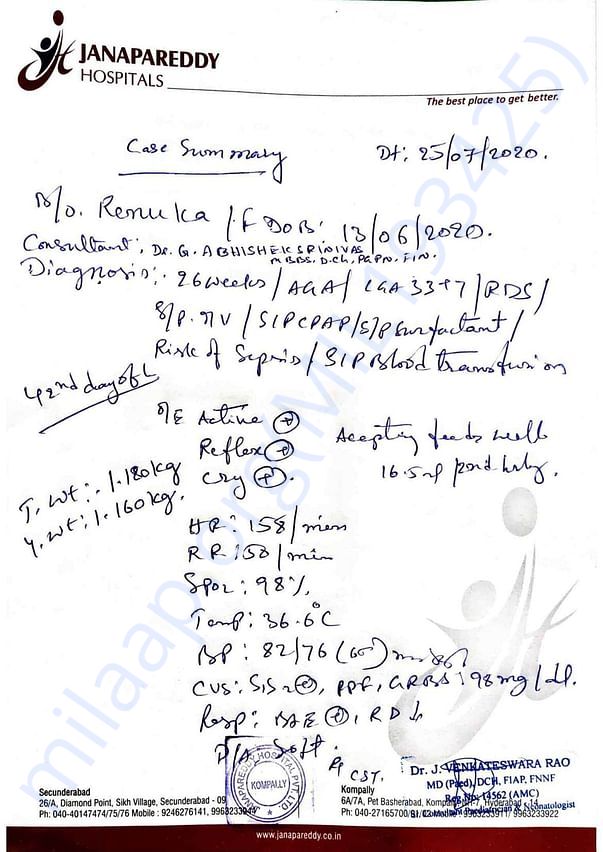 JANAPAREDDY
HOSPITALS
The best place to get better.
Case Summary
Dt: 25/07/2020.
B/o. Renuka / F DOB: 13/06/2020.
Consultant: Dr. G. ABHISHEK SRINIVAS
MBBS. D.CH, PGPN.
Diagnosis: 26 weeks / AGA / CGA 33+1 / RDS /
S/P. MV / S/P CPAP / S/P Surfactant /
Risk of Sepsis / S/P Blood transfusion
42nd day of L
O/E Active +
Reflex +
Cry +.
Accepting feeds well
T. wt: 1.180 kg
Y. wt: 1.160 kg.
HR: 158/min
RR: 50/min
SpO2: 98%
Temp: 36.6°C
BP: 82/76 (60)
CVS: S1S2 +, PPF, GRBS: 98 mg/dl.
Resp: BAE +, RD ↓
P/A Soft.
CST.
milaap.org(MIL 1334425)
JANAPAREDDY HOSPITAL PVT LTD
KOMPALLY
Dr. J. VENKATESWARA RAO
MD (Paed), DCH, FIAP, FNNF
Reg.No: 14562 (AMC)
Consultant Paediatrician & Neonatologist
Secunderabad
26/A, Diamond Point, Sikh Village, Secunderabad - 09
Ph: 040-40147474/75/76 Mobile : 9246276141,
Kompally
6A/7A, Pet Basherabad, Kompally, NH-7, Hyderabad - 14
Ph: 040-27165700/ 9963233911/ 9963233922
www.janapareddy.co.in